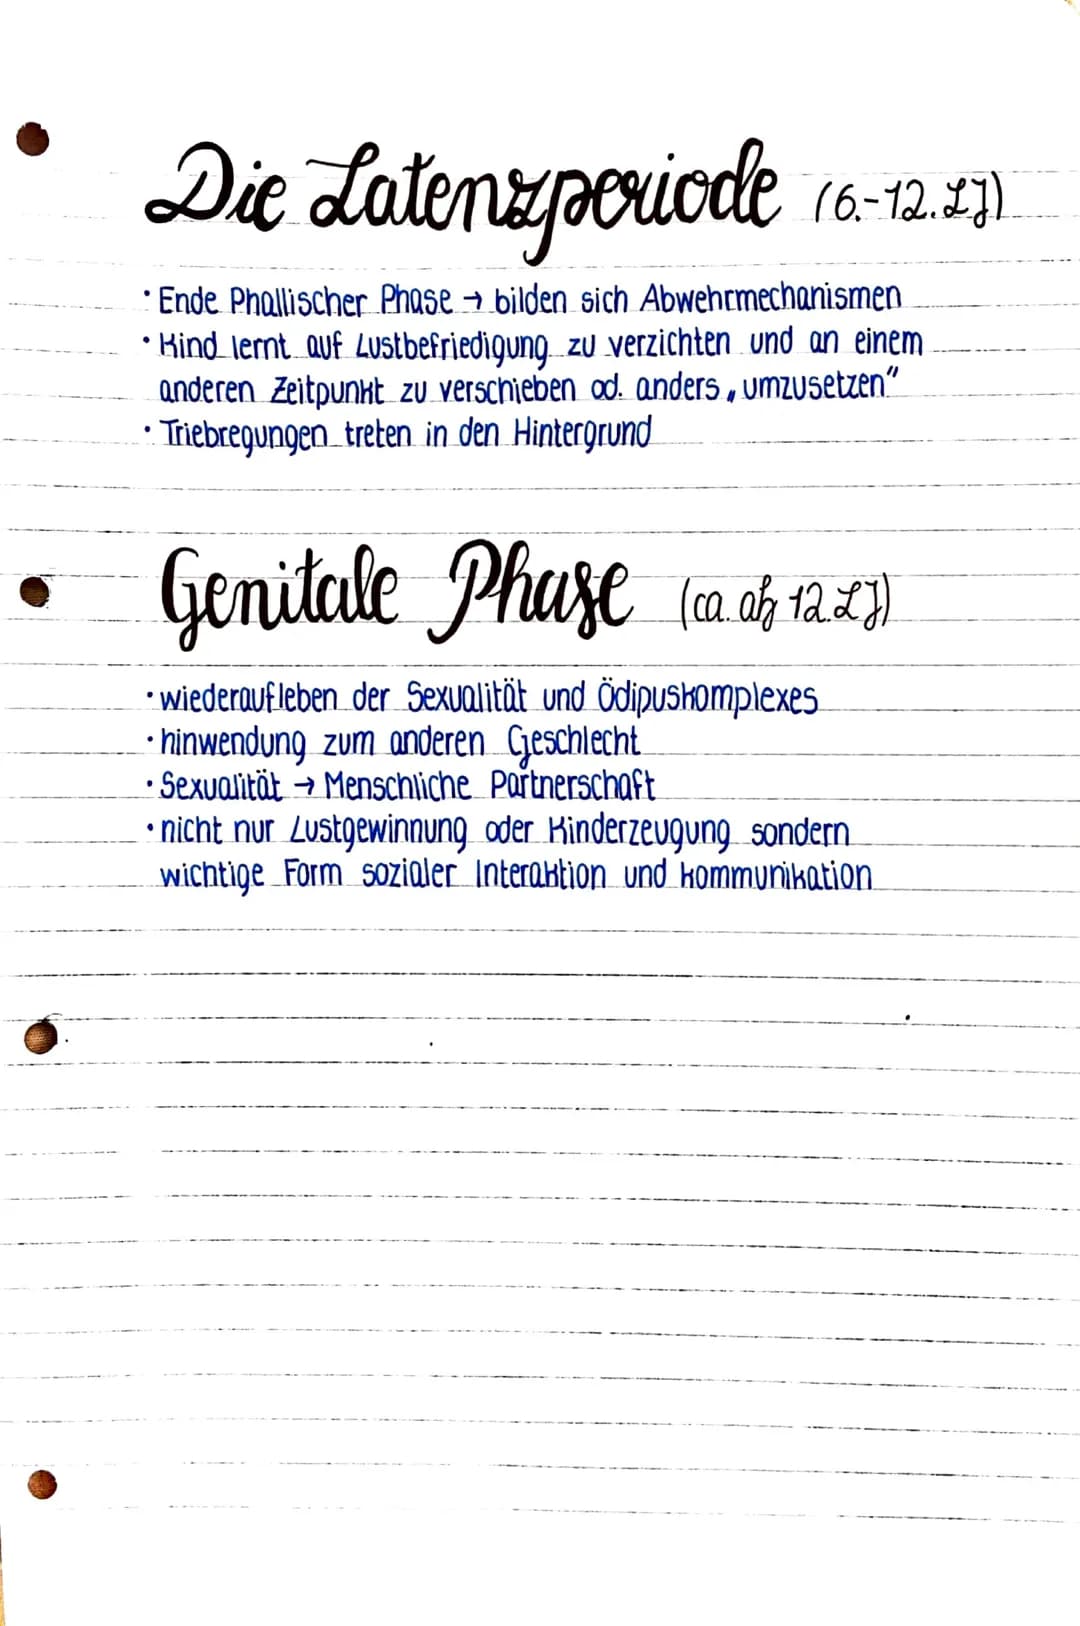 Die Latenzperiode (6.-12. LJ)
· Ende Phallischer Phase → bilden sich Abwehrmechanismen
· Kind lernt auf Lustbefriedigung zu verzichten und an einem
anderen Zeitpunkt zu verschieben od. anders „umzusetzen“
· Triebregungen treten in den Hintergrund
Genitale Phase (ca. ab 12. LJ)
· wiederaufleben der Sexualität und Ödipuskomplexes
· hinwendung zum anderen Geschlecht
· Sexualität → Menschliche Partnerschaft
· nicht nur Lustgewinnung oder Kinderzeugung sondern
wichtige Form sozialer Interaktion und kommunikation